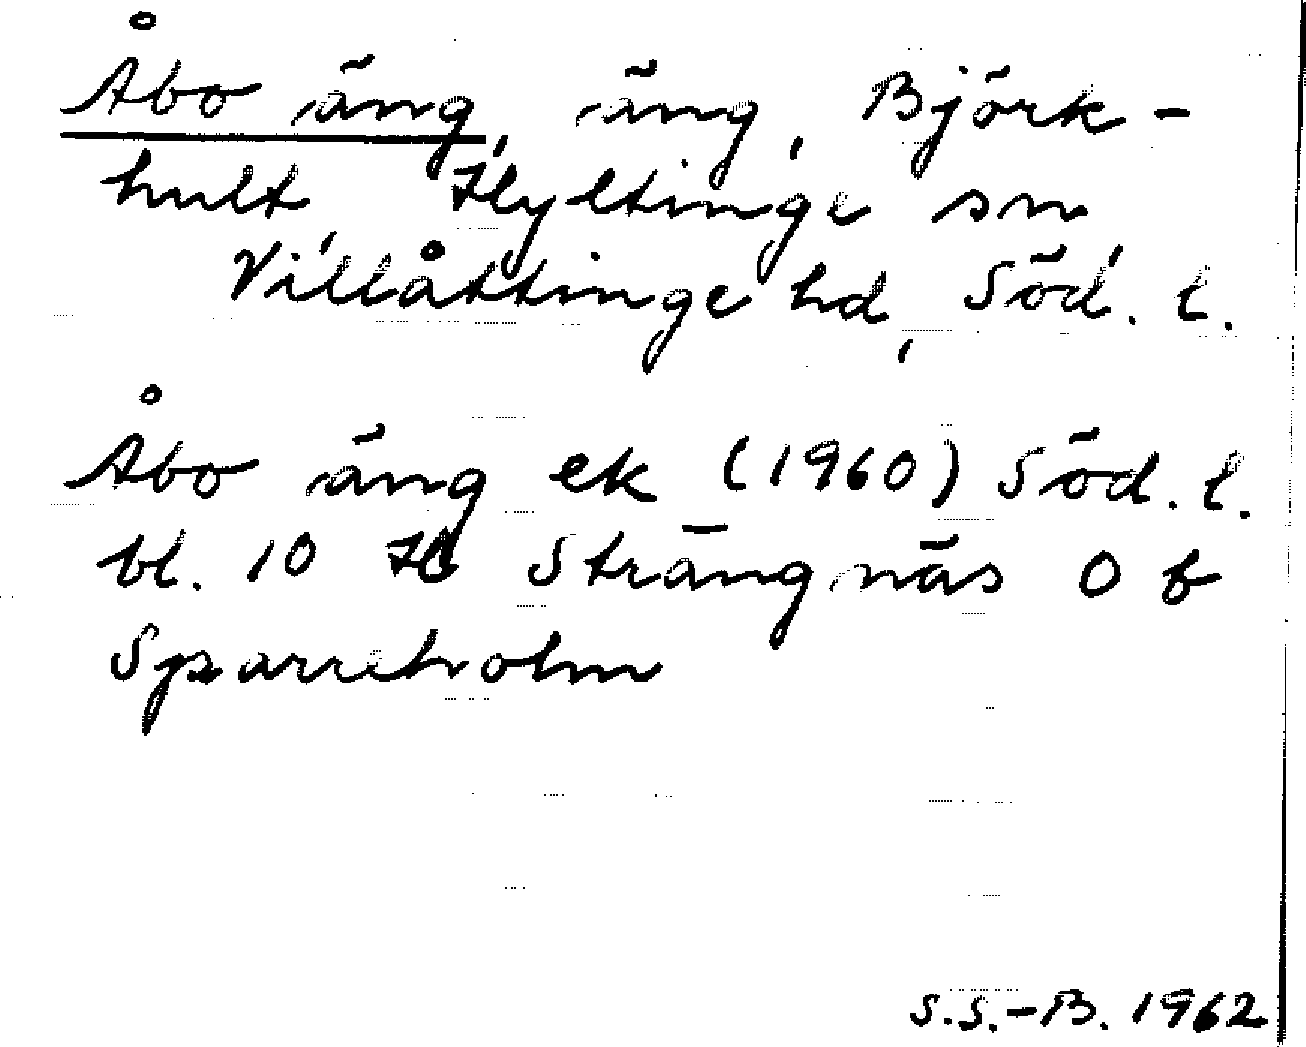 Åbo äng, äng, Björk-
hult, Hyltinge sn
Villåttinge hd, Söd. l.
Åbo äng ek (1960) Söd. l.
bl. 10 H Strängnäs O f
Sparreholm
S.S.-B. 1962